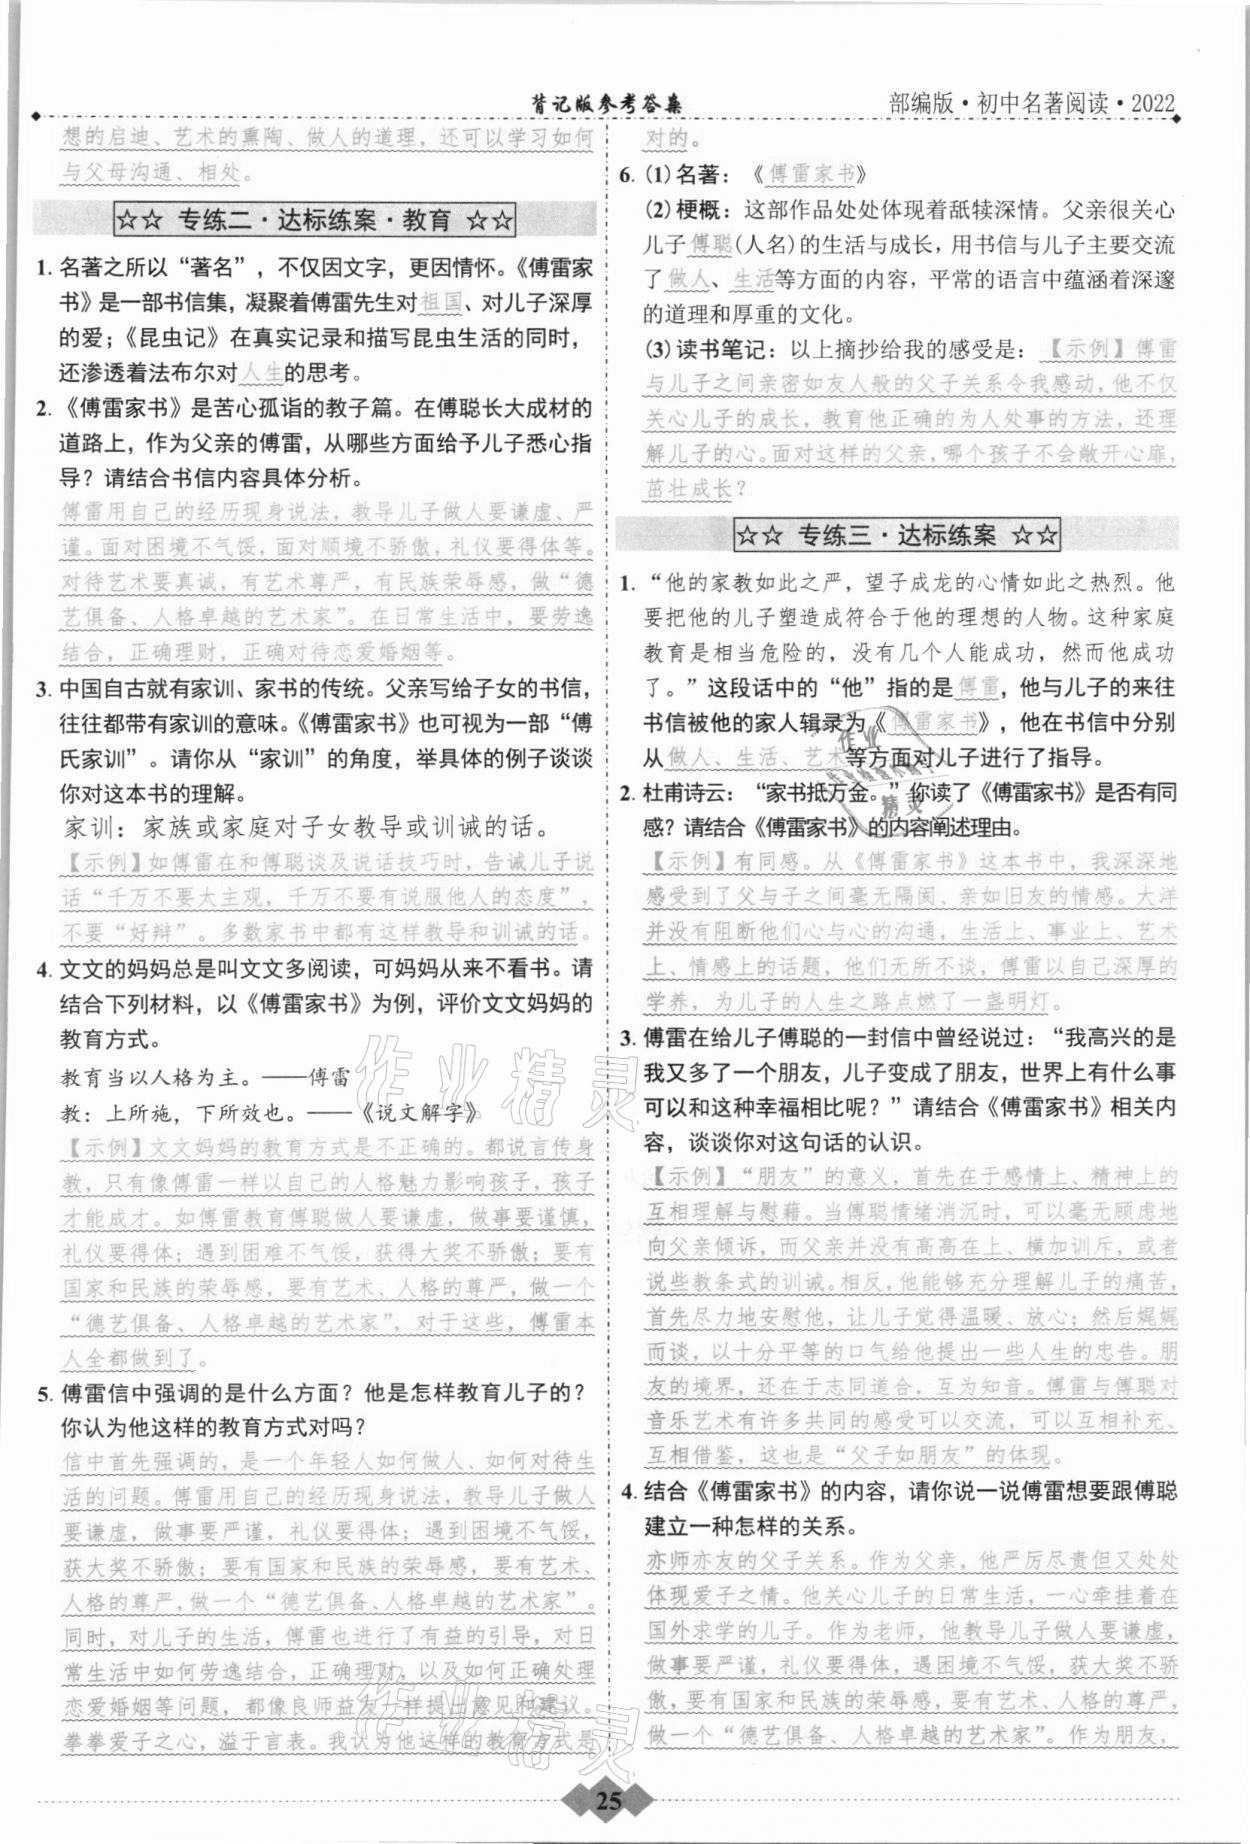 背记版参考答案
部编版·初中名著阅读·2022
想的启迪、艺术的熏陶、做人的道理，还可以学习如何
与父母沟通、相处。
☆☆ 专练二·达标练案·教育 ☆☆
1. 名著之所以“著名”，不仅因文字，更因情怀。《傅雷家
书》是一部书信集，凝聚着傅雷先生对祖国、对儿子深厚
的爱；《昆虫记》在真实记录和描写昆虫生活的同时，
还渗透着法布尔对人生的思考。
2. 《傅雷家书》是苦心孤诣的教子篇。在傅聪长大成材的
道路上，作为父亲的傅雷，从哪些方面给予儿子悉心指
导？请结合书信内容具体分析。
傅雷用自己的经历现身说法，教导儿子做人要谦虚、严
谨。面对困境不气馁，面对顺境不骄傲，礼仪要得体等。
对待艺术要真诚，有艺术尊严，有民族荣辱感，做“德
艺俱备、人格卓越的艺术家”。在日常生活中，要劳逸
结合，正确理财，正确对待恋爱婚姻等。
3. 中国自古就有家训、家书的传统。父亲写给子女的书信，
往往都带有家训的意味。《傅雷家书》也可视为一部“傅
氏家训”。请你从“家训”的角度，举具体的例子谈谈
你对这本书的理解。
家训：家族或家庭对子女教导或训诫的话。
【示例】如傅雷在和傅聪谈及说话技巧时，告诫儿子说
话“千万不要太主观，千万不要有说服他人的态度”，
不要“好辩”。多数家书中都有这样教导和训诫的话。
4. 文文的妈妈总是叫文文多阅读，可妈妈从来不看书。请
结合下列材料，以《傅雷家书》为例，评价文文妈妈的
教育方式。
教育当以人格为主。——傅雷
教：上所施，下所效也。——《说文解字》
【示例】文文妈妈的教育方式是不正确的。都说言传身
教，只有像傅雷一样以自己的人格魅力影响孩子，孩子
才能成才。如傅雷教育傅聪做人要谦虚，做事要谨慎，
礼仪要得体；遇到困难不气馁，获得大奖不骄傲；要有
国家和民族的荣辱感，要有艺术、人格的尊严，做一个
“德艺俱备、人格卓越的艺术家”，对于这些，傅雷本
人全都做到了。
5. 傅雷信中强调的是什么方面？他是怎样教育儿子的？
你认为他这样的教育方式对吗？
信中首先强调的，是一个年轻人如何做人、如何对待生
活的问题。傅雷用自己的经历现身说法，教导儿子做人
要谦虚，做事要严谨，礼仪要得体；遇到困境不气馁，
获大奖不骄傲；要有国家和民族的荣辱感，要有艺术、
人格的尊严，做一个“德艺俱备、人格卓越的艺术家”。
同时，对儿子的生活，傅雷也进行了有益的引导，对日
常生活中如何劳逸结合，正确理财，以及如何正确处理
恋爱婚姻等问题，都像良师益友一样提出意见和建议。
拳拳爱子之心，溢于言表。我认为他这样的教育方式是
对的。
6. (1)名著：《傅雷家书》
(2)梗概：这部作品处处体现着舐犊深情。父亲很关心
儿子傅聪(人名)的生活与成长，用书信与儿子主要交流
了做人、生活等方面的内容，平常的语言中蕴涵着深邃
的道理和厚重的文化。
(3)读书笔记：以上摘抄给我的感受是：【示例】傅雷
与儿子之间亲密如友人般的父子关系令我感动，他不仅
关心儿子的成长，教育他正确的为人处事的方法，还理
解儿子的心。面对这样的父亲，哪个孩子不会敞开心扉，
茁壮成长？
☆☆ 专练三·达标练案 ☆☆
1. “他的家教如此之严，望子成龙的心情如此之热烈。他
要把他的儿子塑造成符合于他的理想的人物。这种家庭
教育是相当危险的，没有几个人能成功，然而他成功
了。”这段话中的“他”指的是傅雷，他与儿子的来往
书信被他的家人辑录为《傅雷家书》，他在书信中分别
从做人、生活、艺术等方面对儿子进行了指导。
2. 杜甫诗云：“家书抵万金。”你读了《傅雷家书》是否有同
感？请结合《傅雷家书》的内容阐述理由。
【示例】有同感。从《傅雷家书》这本书中，我深深地
感受到了父与子之间毫无隔阂、亲如旧友的情感。大洋
并没有阻断他们心与心的沟通，生活上、事业上、艺术
上、情感上的话题，他们无所不谈，傅雷以自己深厚的
学养，为儿子的人生之路点燃了一盏明灯。
3. 傅雷在给儿子傅聪的一封信中曾经说过：“我高兴的是
我又多了一个朋友，儿子变成了朋友，世界上有什么事
可以和这种幸福相比呢？”请结合《傅雷家书》相关内
容，谈谈你对这句话的认识。
【示例】“朋友”的意义，首先在于感情上、精神上的
互相理解与慰藉。当傅聪情绪消沉时，可以毫无顾虑地
向父亲倾诉，而父亲并没有高高在上、横加训斥，或者
说些教条式的训诫。相反，他能够充分理解儿子的痛苦，
首先尽力地安慰他，让儿子觉得温暖、放心；然后娓娓
而谈，以十分平等的口气给他提出一些人生的忠告。朋
友的境界，还在于志同道合，互为知音。傅雷与傅聪对
音乐艺术有许多共同的感受可以交流，可以互相补充、
互相借鉴，这也是“父子如朋友”的体现。
4. 结合《傅雷家书》的内容，请你说一说傅雷想要跟傅聪
建立一种怎样的关系。
亦师亦友的父子关系。作为父亲，他严厉尽责但又处处
体现爱子之情。他关心儿子的日常生活，一心牵挂着在
国外求学的儿子。作为老师，他教导儿子做人要谦虚，
做事要严谨，礼仪要得体；遇到困境不气馁，获大奖不骄
傲，要有国家和民族的荣辱感，要有艺术、人格的尊严，
做一个“德艺俱备、人格卓越的艺术家”。作为朋友，
25
作业精灵
作业精灵
作业
精灵